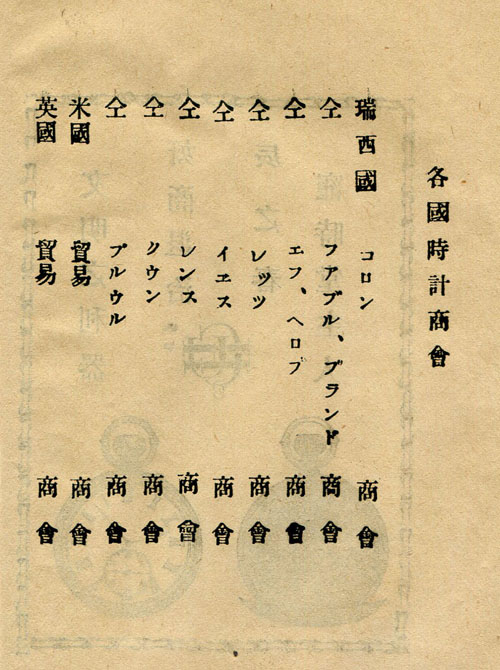 各國時計商會
瑞西國 コロン 商會
仝 フアブル、ブランド 商會
仝 エフ、ヘロブ 商會
仝 レッツ 商會
仝 イヱス 商會
仝 レンス 商會
仝 クウン 商會
仝 プルウル 商會
米國 貿易 商會
英國 貿易 商會